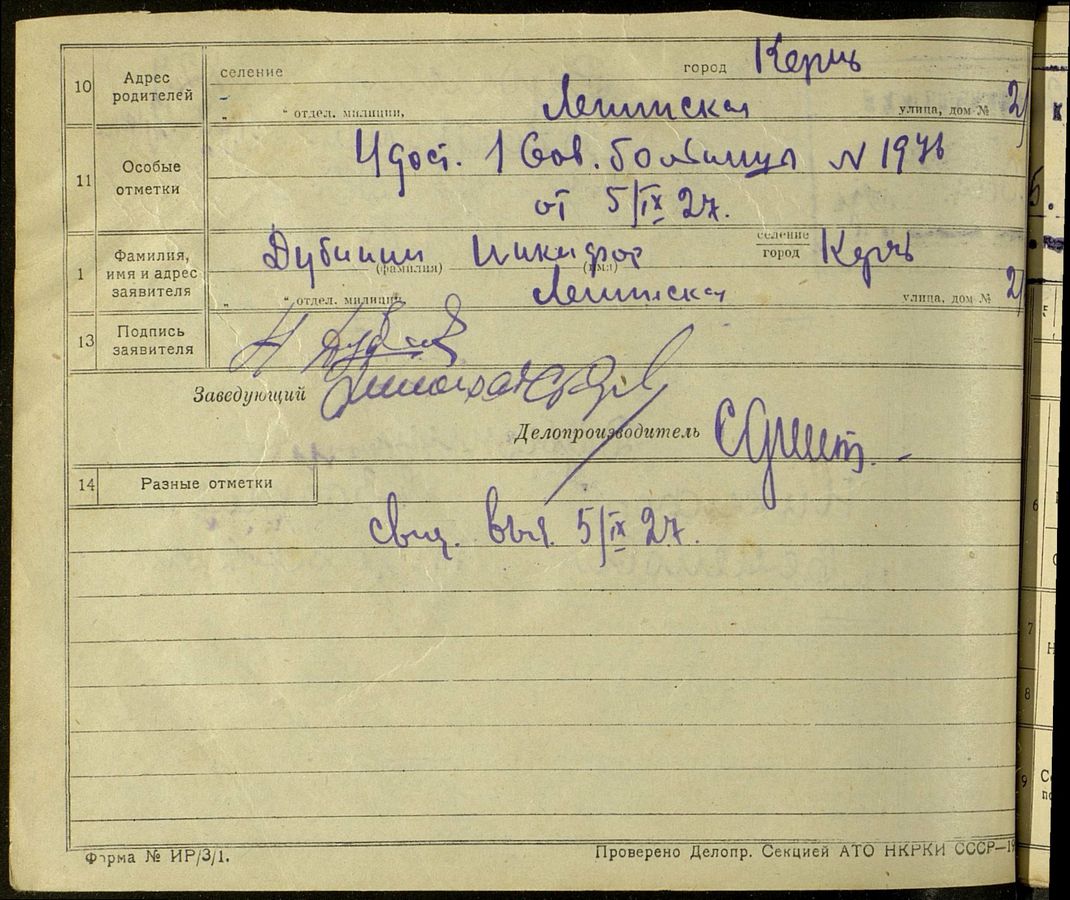 10 Адрес родителей селение город Керчь
„ “ отдел. милиции, Ленинская улица, дом № 2
11 Особые отметки Удост. 1 Сов. больницы № 1976
от 5/IX 27.
1 Фамилия, имя и адрес заявителя Дубинин Никифор (фамилия) (имя) селение город Керчь
„ “ отдел. милиции, Ленинская улица, дом № 2
13 Подпись заявителя Н Дубинин
Заведующий
Делопроизводитель
14 Разные отметки
свид. выд. 5/IX 27.
Форма № ИР/3/1.
Проверено Делопр. Секцией АТО НКРКИ СССР—19